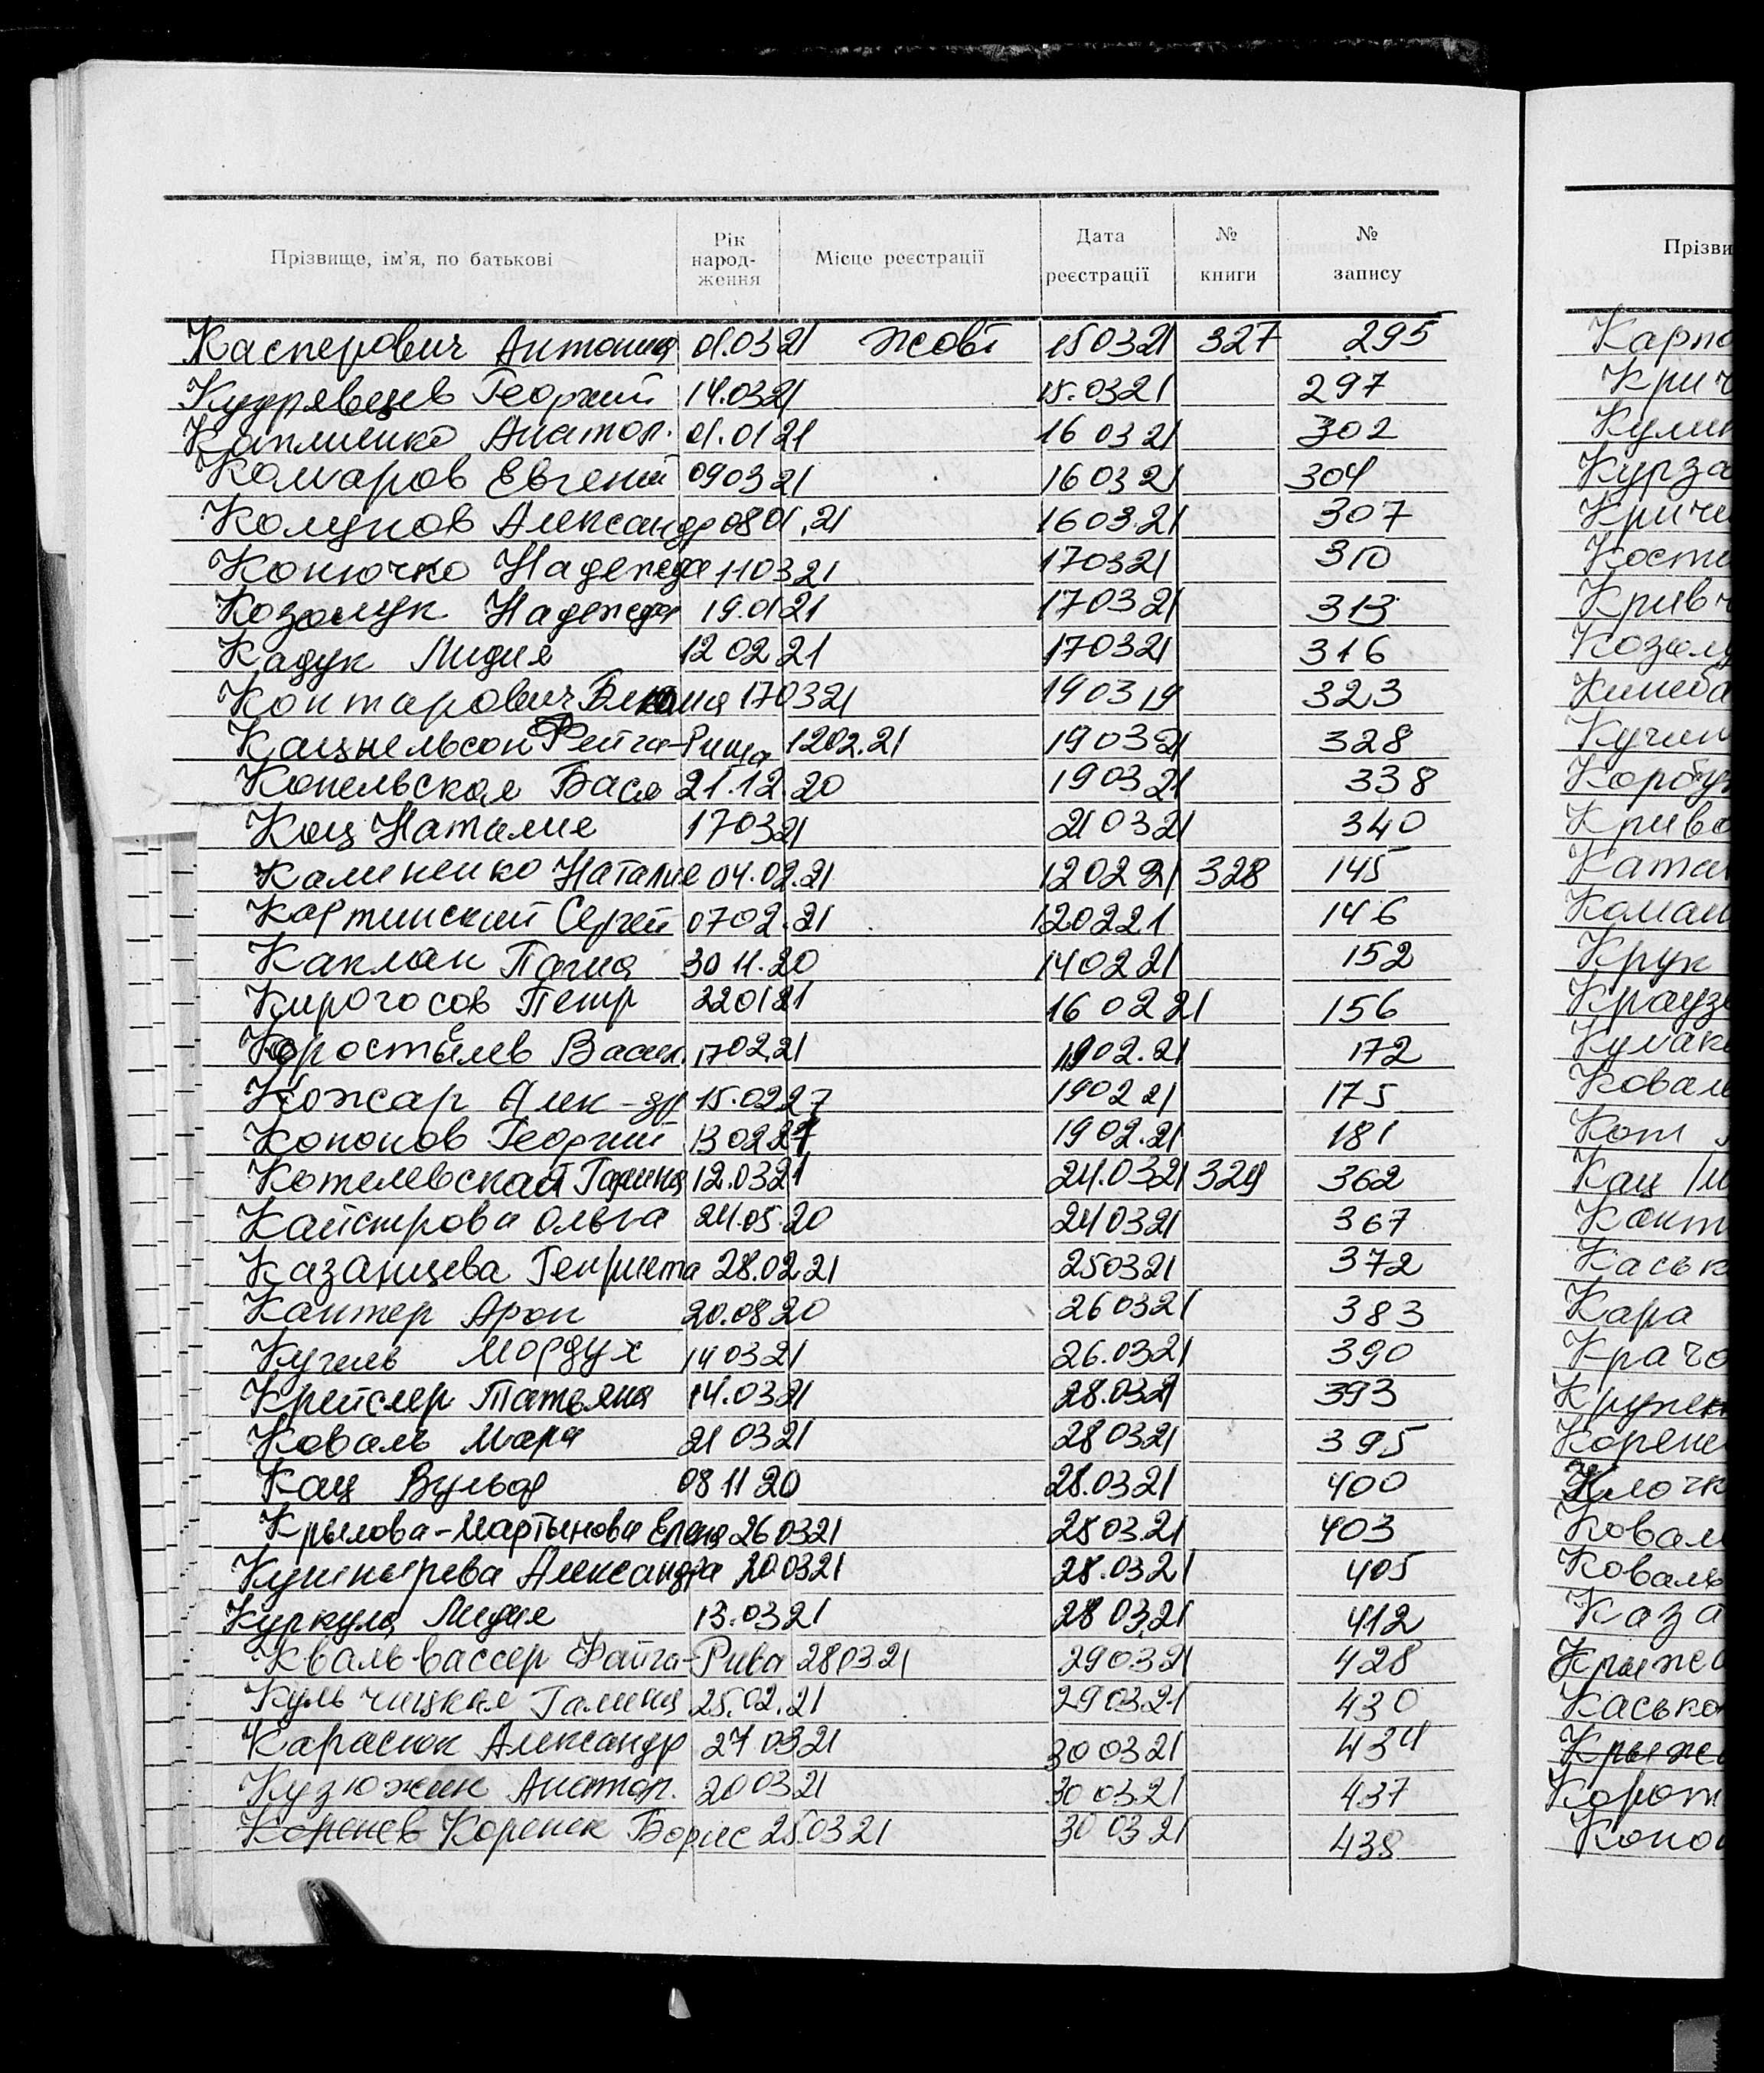 Прізвище, ім'я, по батькові Рік народ-ження Місце реєстрації Дата реєстрації № книги № запису
Касперович Антонина 01.03 21 Жовт 15 03 21 327 295
Кудрявцев Георгий 14.03 21 15.03 21 297
Каплиенко Анатол. 01.01 21 16 03 21 302
Комаров Евгений 09 03 21 16 03 21 304
Колунов Александр 08 01.21 16 03.21 307
Конючко Надежда 11 03 21 17 03 21 310
Козолук Надежда 19.01 21 17 03 21 313
Кадук Лидия 12 02 21 17 03 21 316
Контарович 17 03 21 19 03 19 323
Кацнельсон Фейга-Риша 12 02.21 19 03 21 328
Копельская Бася 21.12.20 19 03 21 338
Кац Наталия 17 03 21 21 03 21 340
Калиненко Наталия 04.02.21 12 02 21 328 145
Картинский Сергей 07 02.21 12 02 21 146
Каклан 30 11.20 14 02 21 152
Кирогосов Петр 22 01 21 16 02 21 156
Коростылев Васил. 17 02.21 19 02.21 172
Кожар Алек-др 15.02 27 19 02 21 175
Кононов Георгий 13 02 21 19 02.21 181
Котелевская Галина 12.03 21 24.03 21 329 362
Кайстрова Ольга 24.05.20 24 03 21 367
Казанцева Генриета 28.02 21 25 03 21 372
Кантер Арон 20.08 20 26 03 21 383
Кугель Мордух 14 03 21 26.03 21 390
Крейслер Татьяна 14.03 21 28.03 21 393
Коваль Мара 21 03 21 28 03 21 395
Кац Вульф 08 11 20 28.03 21 400
Крылова-Мартынова Елена 26 03 21 28 03.21 403
Кушнырева Александра 20 03 21 28.03.21 405
Куркула Лидия 13.03 21 28 03.21 412
Квальвассер Файга-Рива 28 03 21 29 03 21 428
Кульчицкая Галина 25.02.21 29 03.21 430
Карасюк Александр 27 03 21 30 03 21 434
Кузюжик Анатол. 20 03 21 30 03.21 437
Коренев Коренек Борис 25.03 21 30 03 21 438
Прізви
Карпо
Крич
Кулик
Курза
Криче
Кости
Кривч
Козолу
Кучин
Корбу
Криво
Ката
Коман
Крук
Краузе
Кулак
Ковал
Кот
Кац
Кант
Каськ
Кара
Краго
Кружек
Корене
Клочк
Ковал
Коваль
Каза
Крыжа
Касько
Крыжа
Корот
Коно